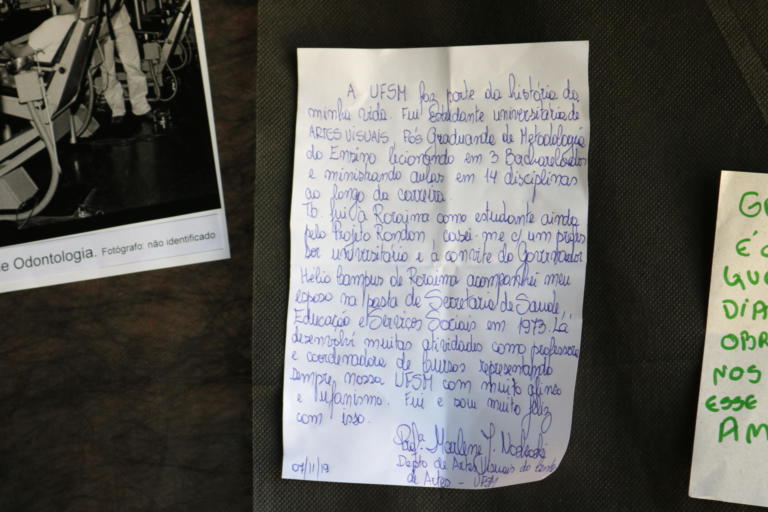 e Odontologia. Fotógrafo: não identificado
A UFSM faz parte da história da
minha vida. Fui Estudante universitária de
ARTES VISUAIS. Pós Graduanda de Metodologia
do Ensino licionando em 3 Bacharelados
e ministrando aulas em 14 disciplinas
ao longo da carreira.
Tb. fui à Roraima como estudante ainda
pelo Projeto Rondon, casei-me c/ um profes
sor universitário e à convite do Governador
Hélio Campus de Roraima acompanhei meu
esposo na pasta de Secretário de Saúde,
Educação e Serviços Sociais em 1973. Lá
desenvolvi muitas atividades como professora
e coordenadora de Cursos representando
sempre nossa UFSM com muito afinco
e ufanismo. Fui e sou muito feliz
com isso.
Profª. Marlene
Depto de Artes Visuais do Centro
de Artes - UFSM
07/11/19
G
É
GU
DIA
OBR
NOS
ESSE
AM